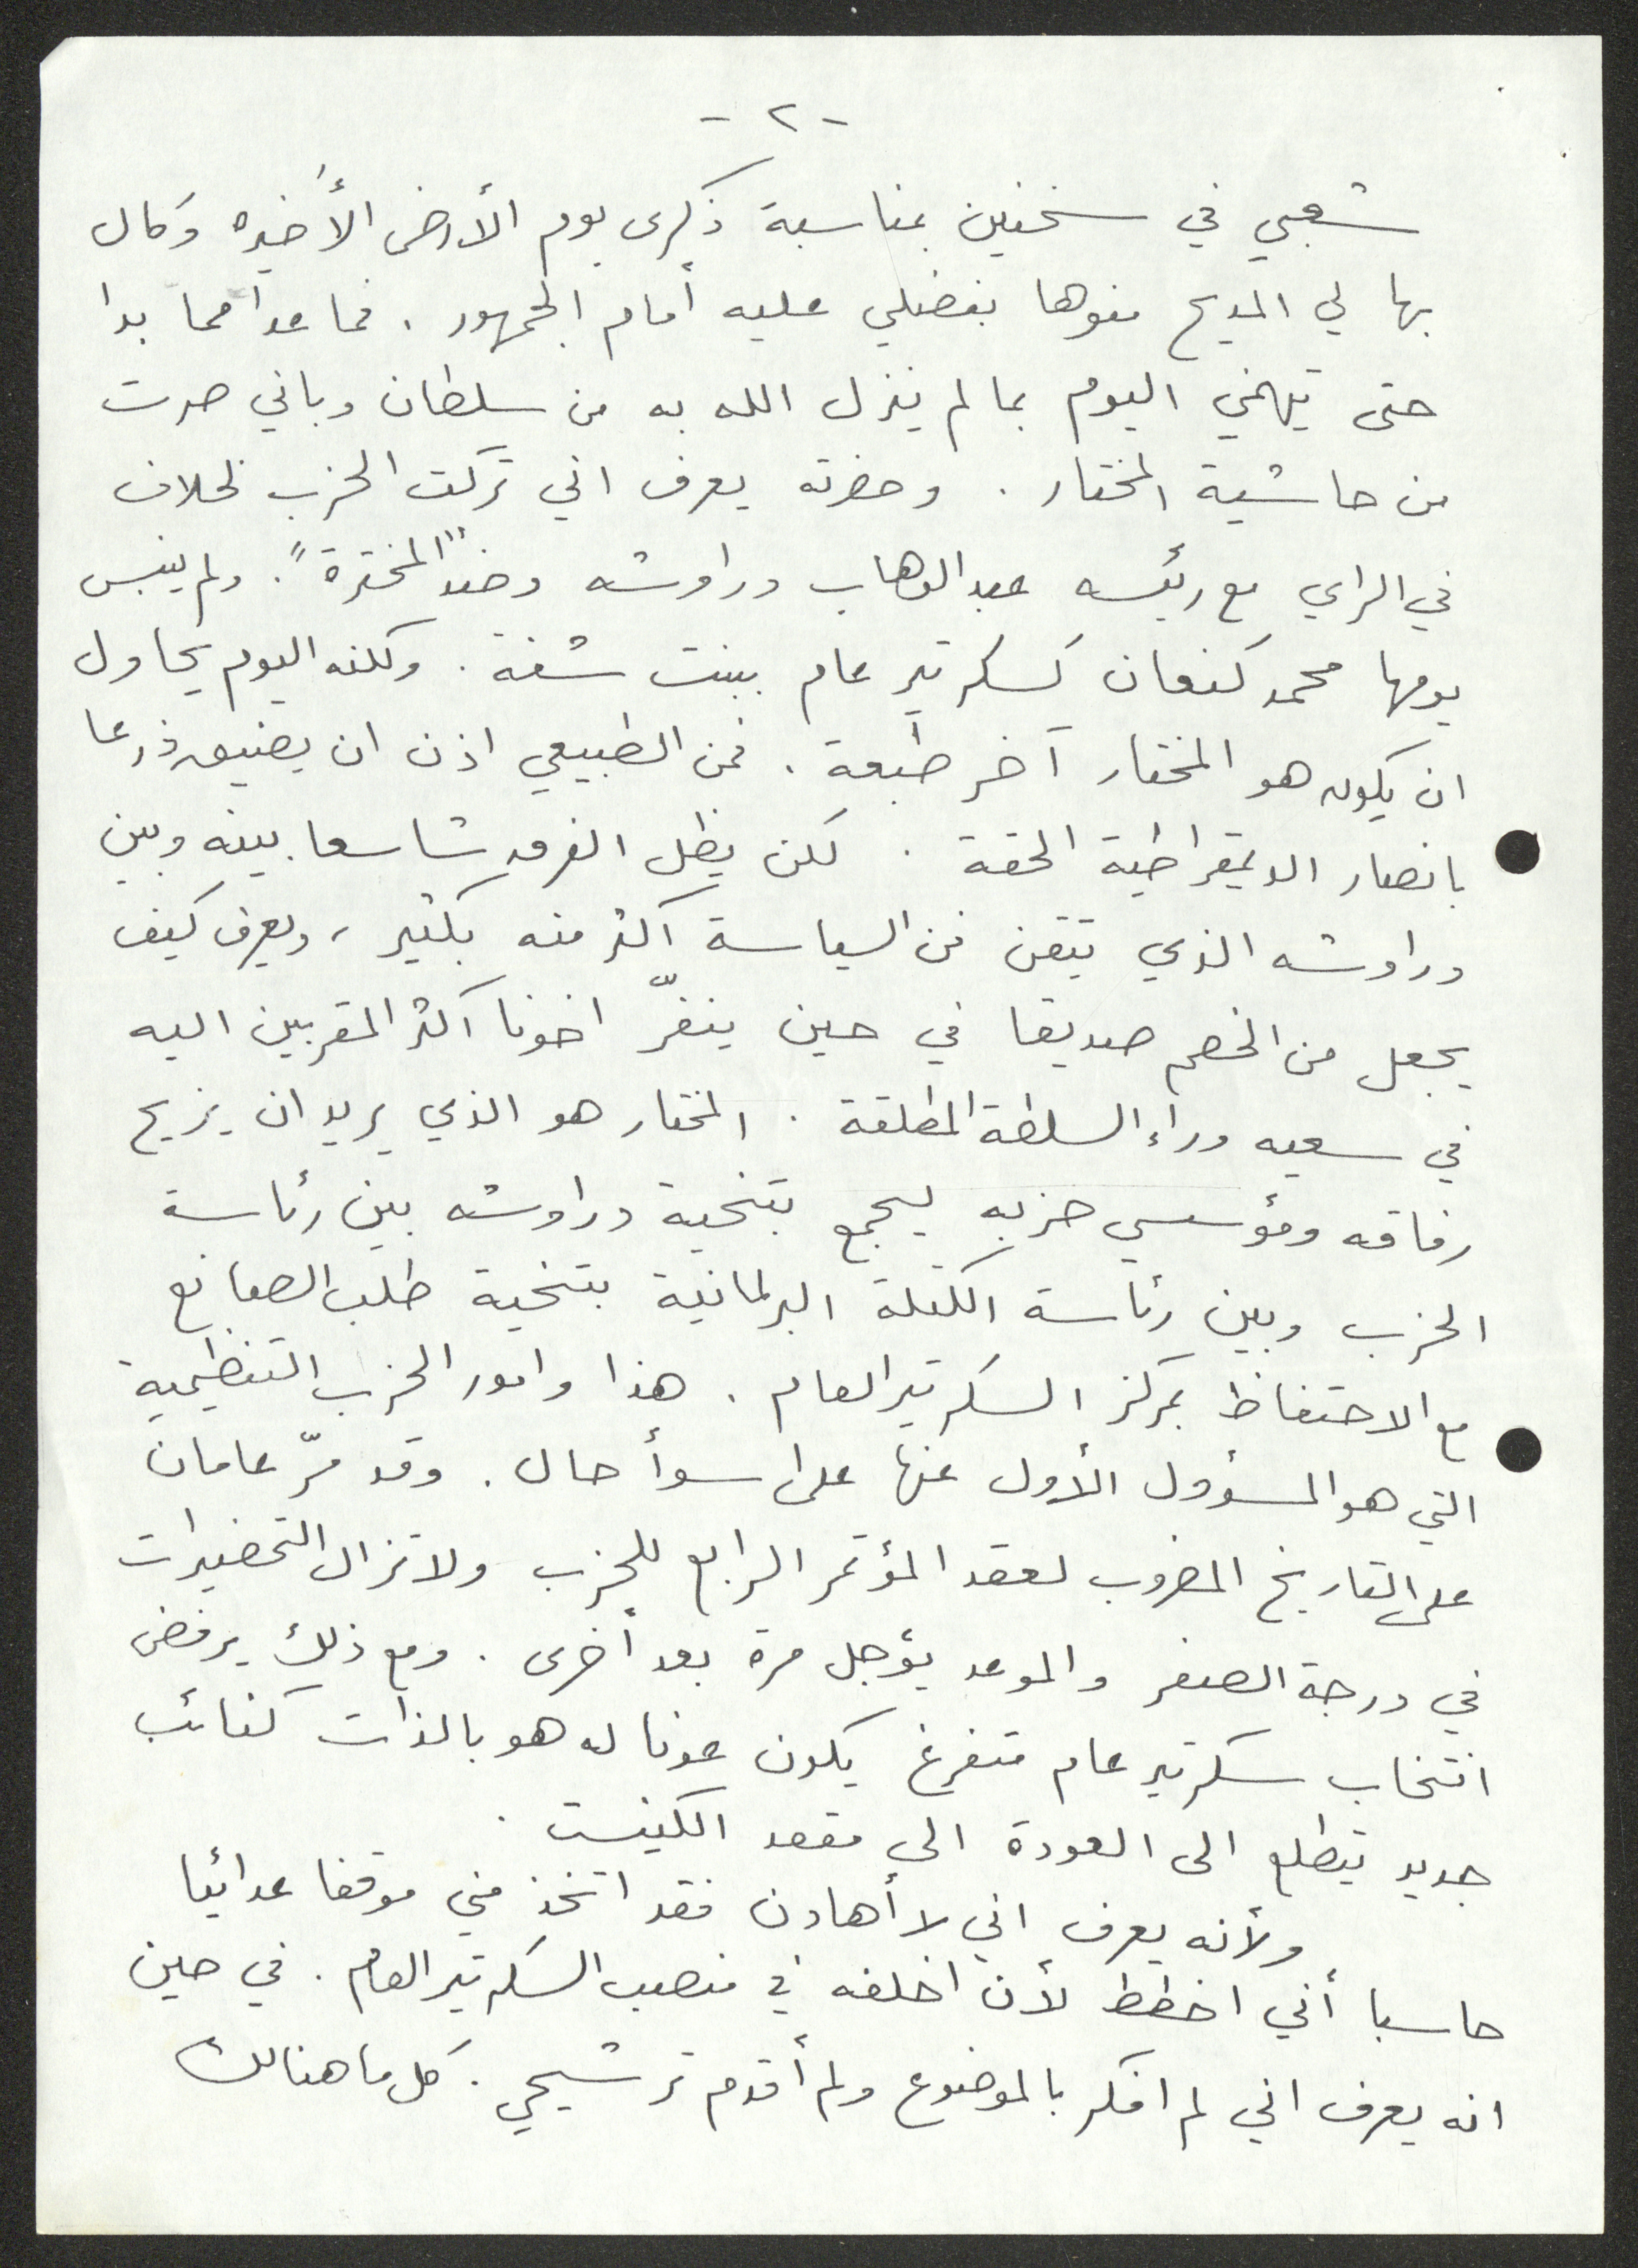 - ٢ -
شعبي في سخنين بمناسبة ذكرى يوم الأرض الأخيره وكال
بها لي المديح منوها بفضلي عليه أمام الجمهور . فما عدا مما بدا
حتى يتهمني اليوم بما لم ينزل الله به من سلطان وباني صرت
من حاشية المختار . وحضرته يعرف اني تركت الحزب لخلاف
في الراي مع رئيسه عبد الوهاب دراوشه وضد "المخترة" . ولم ينبس
يومها محمد كنعان كسكرتير عام ببنت شفة . ولكنه اليوم يحاول
ان يكون هو المختار آخر طبعة . فمن الطبيعي اذن ان يضيق ذرعا
بانصار الديمقراطية الحقة . لكن يظل الفرق شاسعا بينه وبين
دراوشه الذي يتقن فن السياسة اكثر منه بكثير ، ويعرف كيف
يجعل من الخصم صديقا في حين ينفّر اخونا اكثر المقربين اليه
في سعيه وراء السلطة المطلقة . المختار هو الذي يريد ان يزيح
رفاقه ومؤسسي حزبه ليجمع بتنحية دراوشه بين رئاسة
الحزب وبين رئاسة الكتلة البرلمانية بتنحية طلب الصانع
مع الاحتفاظ بمركز السكرتير العام . هذا وامور الحزب التنظيمية
التي هو المسؤول الأول عنها على اسوأ حال . وقد مرّ عامان
على التاريخ المضروب لعقد المؤتمر الرابع للحزب ولا تزال التحضيرات
في درجة الصفر والموعد يؤجل مرة بعد أخرى . ومع ذلك يرفض
انتخاب سكرتير عام متفرغ يكون عونا له هو بالذات كنائب
جديد يتطلع الى العودة الى مقعد الكنيست .
ولأنه يعرف اني لا أهادن فقد اتخذ مني موقفا عدائيا
حاسبا أني اخطط لأن اخلفه في منصب السكرتير العام . في حين
انه يعرف اني لم افكر بالموضوع ولم أقدم ترشيحي . كل ما هنالك